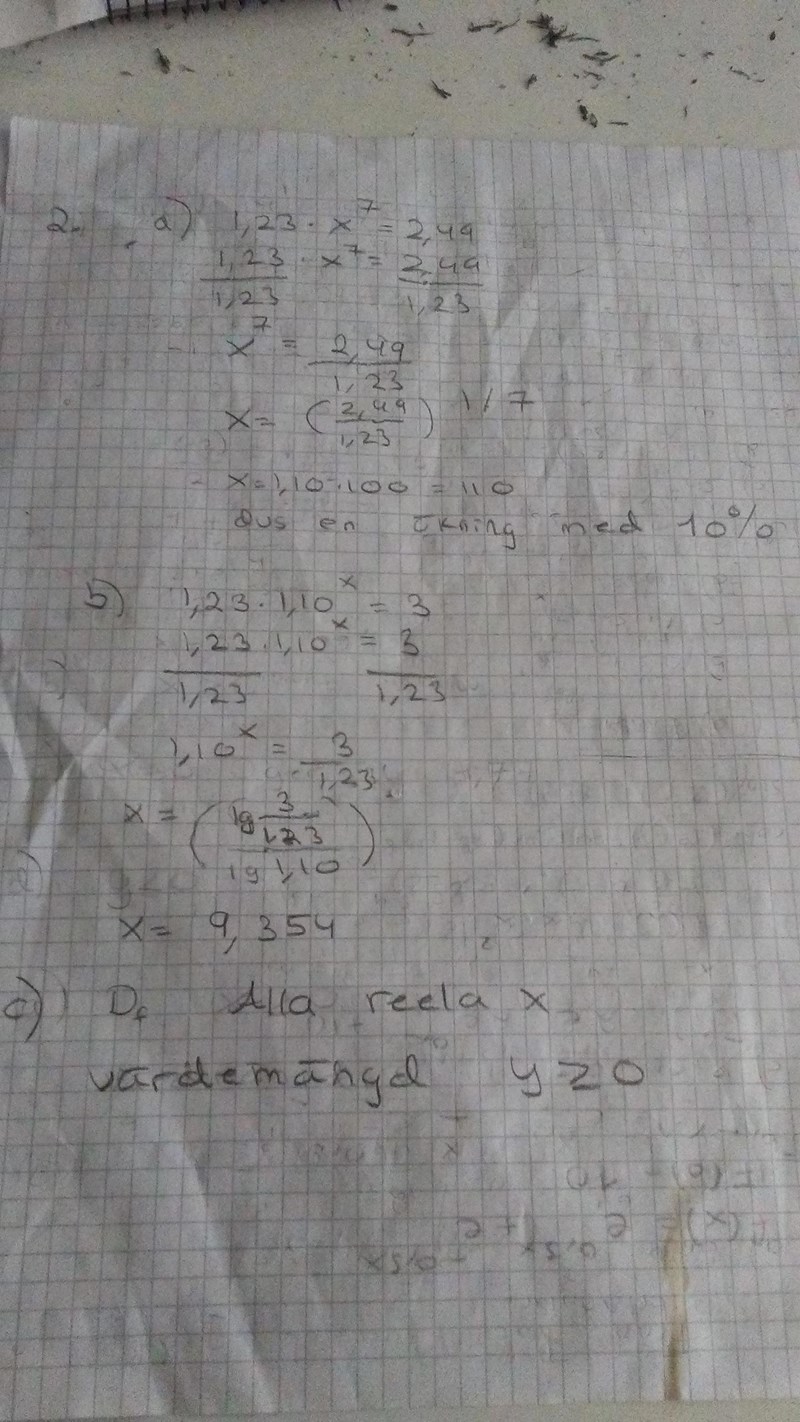 2. a) 1,23 · x^7 = 2,49
1,23/1,23 · x^7 = 2,49/1,23
x^7 = 2,49/1,23
x = (2,49/1,23)^1/7
x = 1,10 · 100 = 110
dvs en ökning med 10%
b) 1,23 · 1,10^x = 3
1,23 · 1,10^x/1,23 = 3/1,23
1,10^x = 3/1,23
x = (lg 3/1,23 / lg 1,10)
x = 9,354
c) Df Alla reela x
värdemängd y ≥ 0